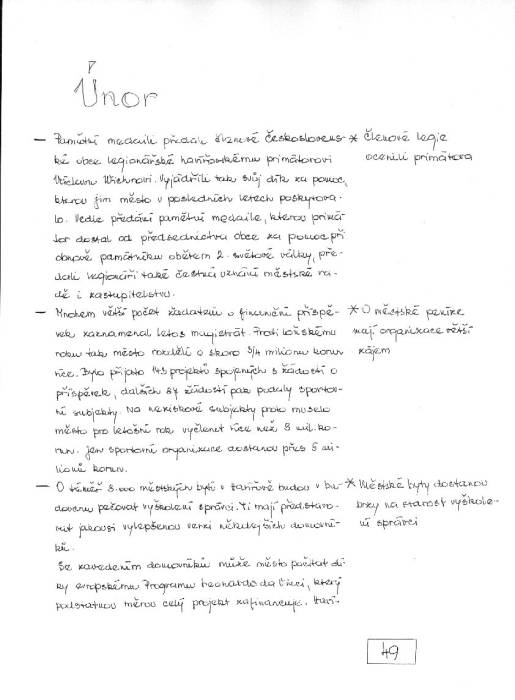 Únor
— Pamětní medaili předali členové Českosloven-
ské obce legionářské havířovskému primátorovi
Václavu Wichnovi. Vyjádřili tak svůj dík za pomoc,
kterou jim město v posledních letech poskytova-
lo. Vedle předání pamětní medaile, kterou primá-
tor dostal od předsednictva obce za pomoc při
obnově památníku obětem 2. světové války, pře-
dali legionáři také čestná uznání městské ra-
dě i zastupitelstvu.
* Členové legie
ocenili primátora
— Mnohem větší počet žadatelů o finanční příspě-
vek zaznamenal letos magistrát. Proti loňskému
roku tak město rozdělí o skoro 3/4 milionu korun
více. Bylo přijato 143 projektů spojených s žádostí o
příspěvek, dalších 37 žádostí pak podaly sportov-
ní subjekty. Na neziskové subjekty proto muselo
město pro letošní rok vyčlenit více než 8 mil. ko-
run. Jen sportovní organizace dostanou přes 5 mi-
lionů korun.
* O městské peníze
mají organizace větší
zájem
— O téměř 8.000 městských bytů v Havířově budou v bu-
doucnu pečovat vyškolení správci. Ti mají představo-
vat jakousi vylepšenou verzi někdejších domovní-
ků.
Se zavedením domovníků může město počítat dí-
ky evropskému Programu Leonardo da Vinci, který
podstatnou měrou celý projekt zafinancuje. Haví-
* Městské byty dostanou
brzy na starost vyškole-
ní správci
49